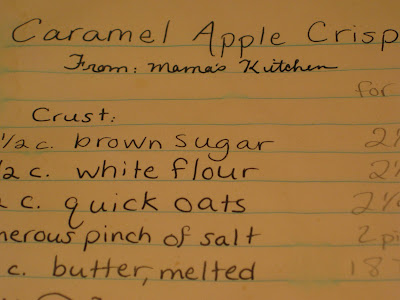 Caramel Apple Crisp
From: Mama's Kitchen
for
Crust:
1/2 c. brown sugar 2 1/
/2 c. white flour 2 1/
c. quick oats 2 1/
nerous pinch of salt 2 pi
c. butter, melted 18 T